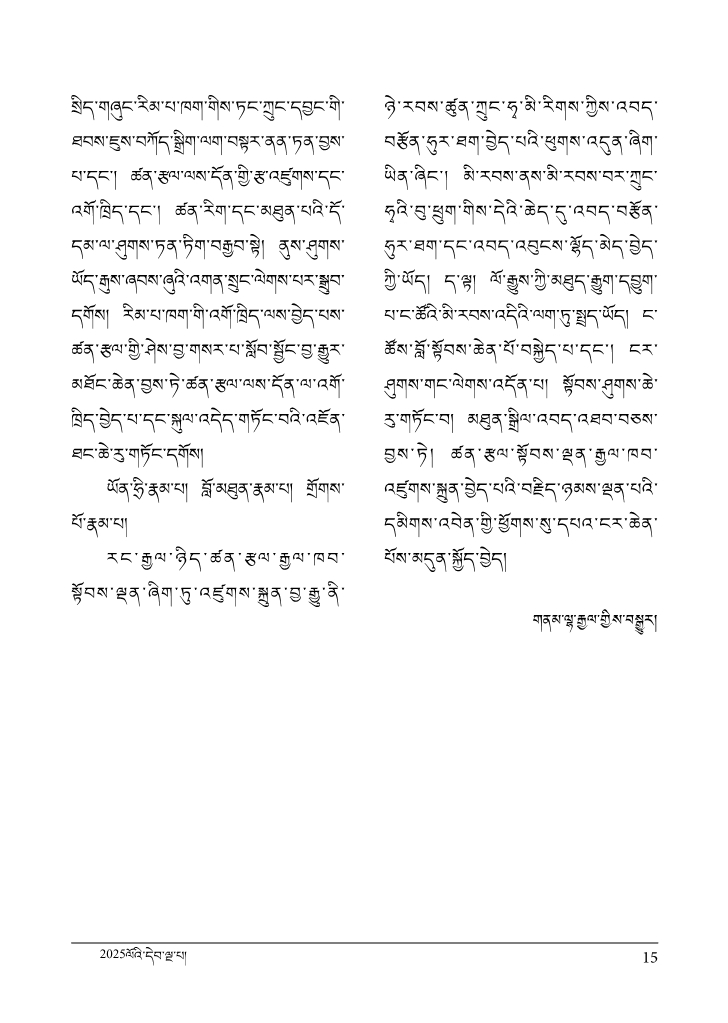 སྲིད་གཞུང་རིམ་པ་ཁག་གིས་ཏང་ཀྲུང་དབྱང་གི་
ཐབས་ཇུས་བཀོད་སྒྲིག་ལག་བསྟར་ནན་ཏན་བྱས་
པ་དང་། ཚན་རྩལ་ལས་དོན་གྱི་རྩ་འཛུགས་དང་
འགོ་ཁྲིད་དང་། ཚན་རིག་དང་མཐུན་པའི་དོ་
དམ་ལ་ཤུགས་ཏན་ཏིག་བརྒྱབ་སྟེ། ནུས་ཤུགས་
ཡོད་རྒུས་ཞབས་ཞུའི་འགན་སྲུང་ལེགས་པར་སྒྲུབ་
དགོས། རིམ་པ་ཁག་གི་འགོ་ཁྲིད་ལས་བྱེད་པས་
ཚན་རྩལ་གྱི་ཤེས་བྱ་གསར་པ་སློབ་སྦྱོང་བྱ་རྒྱུར་
མཐོང་ཆེན་བྱས་ཏེ་ཚན་རྩལ་ལས་དོན་ལ་འགོ་
ཁྲིད་བྱེད་པ་དང་སྐུལ་འདེད་གཏོང་བའི་འཇོན་
ཐང་ཆེ་རུ་གཏོང་དགོས།
ཡོན་ཧྲི་རྣམ་པ། བློ་མཐུན་རྣམ་པ། གྲོགས་
པོ་རྣམ་པ།
རང་རྒྱལ་ཉིད་ཚན་རྩལ་རྒྱལ་ཁབ་
སྟོབས་ལྡན་ཞིག་ཏུ་འཛུགས་སྐྲུན་བྱ་རྒྱུ་ནི་
ཉེ་རབས་ཚུན་ཀྲུང་ཧྭ་མི་རིགས་ཀྱིས་འབད་
བརྩོན་ཧུར་ཐག་བྱེད་པའི་ཕུགས་འདུན་ཞིག་
ཡིན་ཞིང་། མི་རབས་ནས་མི་རབས་བར་ཀྲུང་
ཧྭའི་བུ་ཕྲུག་གིས་དེའི་ཆེད་དུ་འབད་བརྩོན་
ཧུར་ཐག་དང་འབད་འབུངས་ལྷོད་མེད་བྱེད་
ཀྱི་ཡོད། ད་ལྟ། ལོ་རྒྱུས་ཀྱི་མཐུད་རྒྱུག་དབྱུག་
པ་ང་ཚོའི་མི་རབས་འདིའི་ལག་ཏུ་སྤྲད་ཡོད། ང་
ཚོས་བློ་སྟོབས་ཆེན་པོ་བསྐྱེད་པ་དང་། ངར་
ཤུགས་གང་ལེགས་འདོན་པ། སྟོབས་ཤུགས་ཆེ་
རུ་གཏོང་བ། མཐུན་སྒྲིལ་འབད་འཐབ་བཅས་
བྱས་ཏེ། ཚན་རྩལ་སྟོབས་ལྡན་རྒྱལ་ཁབ་
འཛུགས་སྐྲུན་བྱེད་པའི་བརྗིད་ཉམས་ལྡན་པའི་
དམིགས་འབེན་གྱི་ཕྱོགས་སུ་དཔའ་ངར་ཆེན་
པོས་མདུན་སྐྱོད་བྱེད།
གནམ་ལྷ་རྒྱལ་གྱིས་བསྒྱུར།
2025ལོའི་དེབ་ལྔ་པ།
15